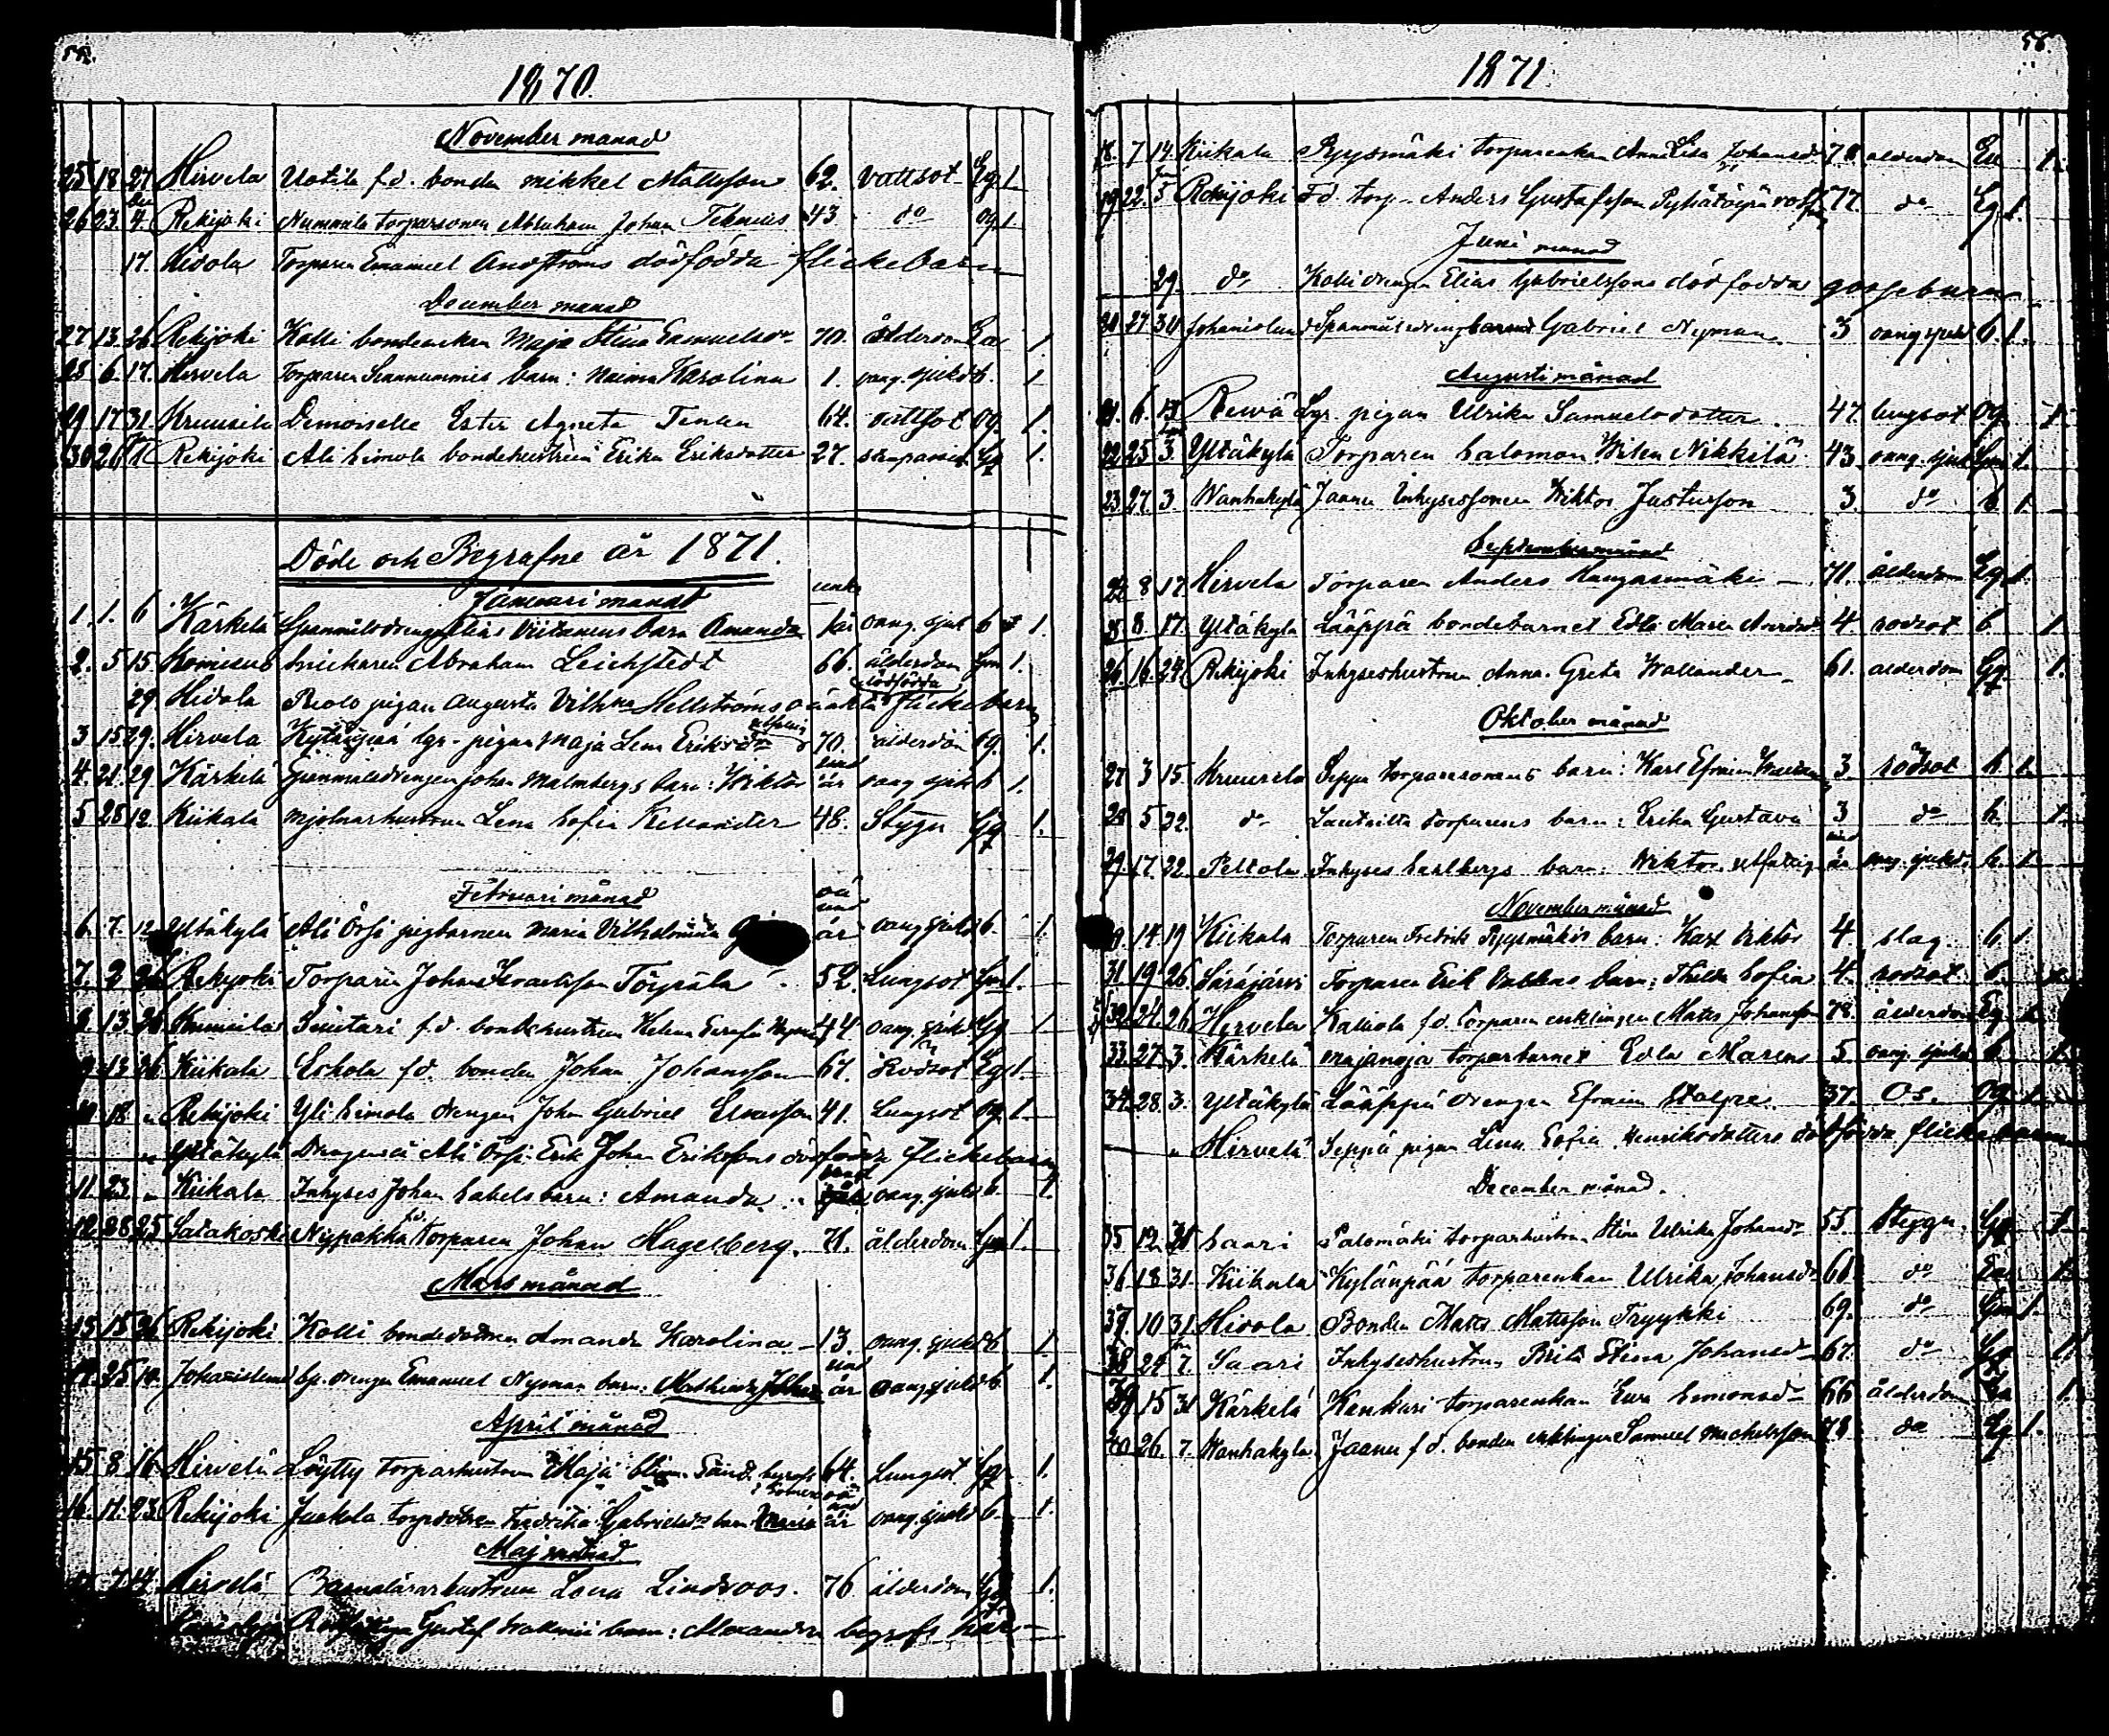 1870.
November manad
25 18 27 Hirvela Uotila f.d. bonden Mikkel Mattsson 62. vattsot Eg. 1
26 23. Dec 4. Rekijoki Nummila torparsonen Abraham Johan 43 do og. 1
17. Hidola Torparen Emanuel Andströms dödfödda flickebarn
December manad
27 13. 26 Rekijoki Kolli bondeenkan Maja Stina Samuelsdr 70. ålderdom Ea 1
28 6. 17. Hirvela Torparen barn: Naima Karolina 1. oang. sjukd b. 1
29 17 31. Kruusila Demoiselle Ester Agneta 64. vattsot og. 1.
30 26 Rekijoki Ali Simola bondehustrun Erika Eriksdotter 27. Gg 1.
Döde och Begrafne år 1871.
Januari manad
1. 1. 6 Kärkelä Spanmålsdrengen Elias Viitanens barn Amanda år oang. sjuk b 1.
2. 5 15 Komisuo Snickaren Abraham Leichstedt 66. ålderdom Gm 1.
29. Hidola pigan Augusta Vilhna Hellströms oäkta dödfödda flickebarn
3 15 29. Hirvela Kylänpää sgr. pigan Maja Lena Eriksdr 70. ålderdom og. 1.
4. 21. 29 Kärkelä Spanmålsdrengen Johan Malmbergs barn: Wiktor und år oang sjuk b 1.
5 28 12. Kiikala Mjolnarhustrun Lena Sofia 48. Stygn Gg 1.
Februari månad
6. 7. 12 Yltäkylä Ali Örsi pigbarnen Maria Vilhelmina oä und år oang sjukd b. 1.
7. 2 26 Rekijoki Torparen Johan Israelsson Törpälä 52. Lungsot Gm 1.
8. 13. 26 Kruusila f.d. bondehustrun Helena 44. oang. sjukd Gg 1
9 13 26 Kiikala Erkola f.d. bonden Johan Johansson 67. Rodsot Eg 1.
10 18 " Rekijoki Yli Simola drengen Johan Gabriel 41. Lungsot og. 1
" Yltäkylä Drengens Ali Örsi Erik Johan Erikssons dödfödda flickebarn
11 23 " Kiikala Inhyses Johan Sabels barn: Amanda und oang. sjukd b. 1
12 28 25 Satakoski Nypakka fd. torparen Johan Hagelberg. 71. ålderdom Gm 1.
Mars månad
13 18 26 Rekijoki Kolli bondedottren Amanda Karolina 13. oang. sjukd b 1
14 25 10. Johanislund Sp. drengen Emanuel Nyman barn: Mathilda und år oang sjukd b. 1.
April månad
15 8 16 Hirvelä Löytty torparhustrun Maja 64. Lungsot Gg 1.
16. 11. 23. Rekijoki Jaakola torpdottren Fredrika Gabrielsdr barn Maria oä und år oang. sjukd b. 1.
Maj månad
7 14 Hirvelä Barnalärarhustrun Lena Lindroos. 76 ålderdom Gg 1.
Gustaf barn: Alexandra begrofs här
56.
1871.
18. 7 14. Kiikala Pyysmäki torparenkan Anna Lisa Johansd 70 alderdom Ea 1.
19 22. 5 Rekijoki F.d. torp. Anders Gustafsson 77. do Eg 1.
Juni manad
29. do Kolli drengen Elias Gabrielssons död fodda gossebarn
20 27 30 Johanislund Gabriel Nyman 3 oang sjukd b. 1.
Augusti månad
21. 6. 13. Rewä Sgr. pigan Ulrika Samuelsdotter. 47. lungsot og. 1.
22 25 3. Yltäkylä Torparen Salomon Nikkilä 43. oang. sjuk Gm 1.
23. 27. 3. Wanhakylä Jaanu Inhysessonen Wiktor Justusson 3. do b. 1.
September månad
24 8 17 Hirvela Torparen Anders Hangasmäki 71. ålderdom Eg. 1.
25 8 17. Yltäkylä Lääppä bondebarnet Edla Maria 4. rodsot b 1.
26. 16. 24. Rekijoki Inhyseshustrun Anna Greta Wallander 61. alderdom Gg. 1.
Oktober månad
27 3 15. Kruusila Seppä torparesonens barn: Karl Efraim 3. rödsot b. 1.
28 5 22. do Lautsilta torparens barn: Erika Gustava 3 do b. 1.
29. 17. 22. Peltola Inhyses Karlbergs barn: Wiktor utfattig und år oang. sjukd b. 1.
November månad
14 19 Kiikala Torparen Fredrik Pyysmäkis barn: Karl Viktor 4 slag. b. 1
31. 19. 26. Säräjärvi Torparen Erik barn: Thilda Sofia 4. rodsot. b. 1.
32 24. 26 Hirvela Kaliola f.d. torparen enklingen Matts Johansson 78. ålderdom Eg. 1.
33. 27. 3. Kärkelä Majanoja torparbarnet Edla Maria 5. oang. sjukd b. 1.
34. 28. 3. Yltäkylä Lääppä drengen Efraim Stolpe. 37. O.S. og. 1.
" Hirvelä Seppä pigan Lena Sofia Henriksdotters dödfödda flickebarn
December månad.
35 12. 31 Saari Palomäki torparhustrun Stina Ulrika Johansdr 55. Styggn. Gg 1.
36 18 31. Kiikala Kylänpää torparenkan Ulrika Johansdr 61. do Ea 1.
37. 10 31. Hidola Bonden Matts Mattsson Tryykki 69. do Gm 1.
38 24 7. Saari Inhyseshustrun Brita Stina Johansdr 67. do Gg 1.
39 15 31 Kärkelä Kankari torparenkan Eva Simonsdr 66 ålderdom Ea 1.
40 26. 7. Wanhakylä Jaanu f.d. bonden enklingen Samuel Michelsson 78 do Eg 1.